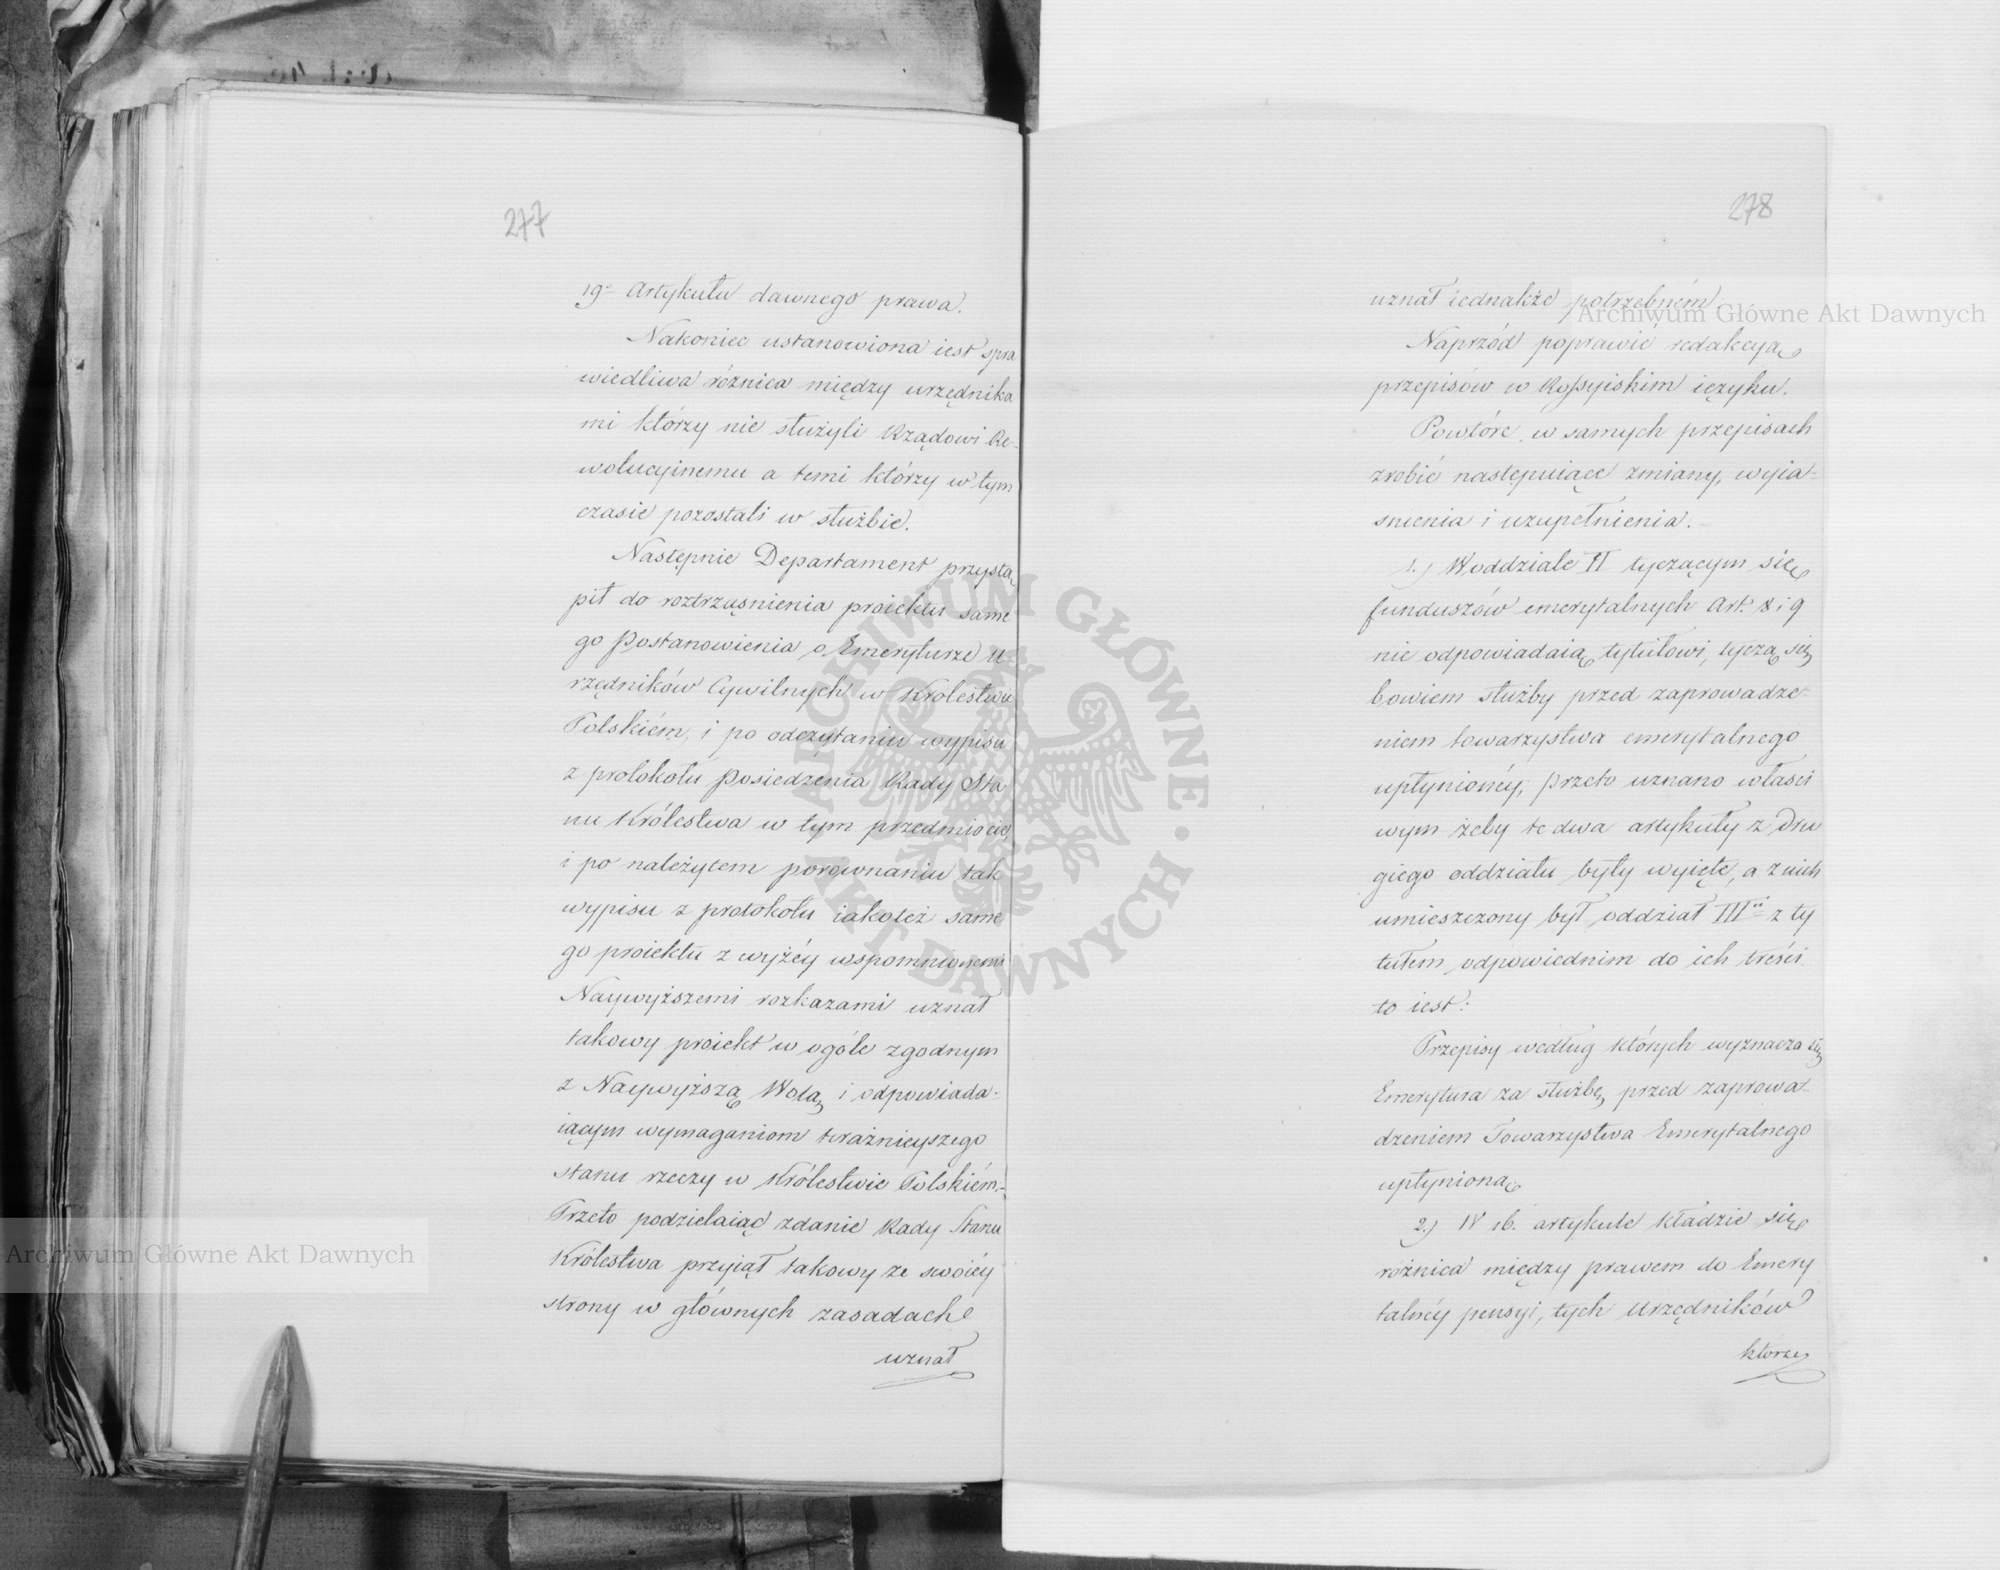 277
19º Artykułu dawnego prawa.
Nakoniec ustanowiona iest spra
wiedliwa różnica między urzędnika
mi którzy nie służyli Rządowi Re-
wolucyinemu a temi którzy w tym
czasie pozostali w służbie.
Następnie Departament przystą
pił do roztrząśnienia proiektu same
go Postanowienia o Emeryturze U-
rzędników Cywilnych w Królestwie
Polskiém, i po odczytaniu wypisu
z protokołu Posiedzenia Rady Sta
nu Królestwa w tym przedmiocie
i po należytem porównaniu tak
wypisu z protokołu iakoteż same
go proiektu z wyżéy wspomnionemi
Naywyższemi rozkazami uznał
takowy proiekt w ogóle zgodnym
z Naywyższą Wolą i odpowiada-
iącym wymaganiom teraźnieyszego
stanu rzeczy w Królestwie Polskiém.-
Przeto podzielaiąc zdanie Rady Stanu
Królestwa przyiął takowy ze swoiéy
strony w głównych zasadach
uznał
278
uznał iednakże potrzebném
Naprzód poprawić redakcyą
przepisów w Rossyiskim ięzyku.
Powtóre, w samych przepisach
zrobić następuiące zmiany, wyia-
snienia i uzupełnienia.-
1.) W oddziale II tyczącym się
funduszów emerytalnych Art. 8 i 9
nie odpowiadaią tytułowi, tyczą się
bowiem służby przed zaprowadze-
niem towarzystwa emerytalnego
upłynionéy, przeto uznano właści
wym żeby te dwa artykuły z Dru
giego oddziału były wyięte, a z nich
umieszczony był oddział III z ty
tułem odpowiednim do ich treści
to iest:
Przepisy według których wyznacza się
Emerytura za służbę przed zaprowa-
dzeniem Towarzystwa Emerytalnego
upłynioną
2.) W 16. artykule kładzie się
różnica między prawem do Emery
talnéy pensyi, tych Urzędników
którzy
Archiwum Główne Akt Dawnych
Archiwum Główne Akt Dawnych
ARCHIWUM GŁÓWNE · AKT DAWNYCH ·